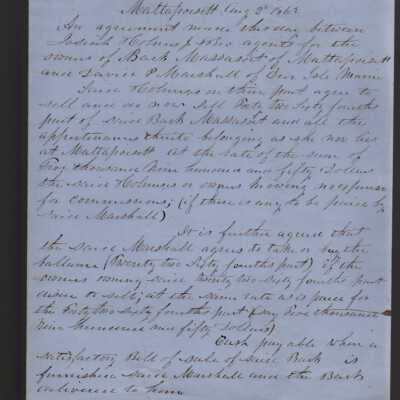 Mattapoisett Aug 2d 1862
An agreement made this day between
Josiah Holmes Jr & Bro agents for the
owners of Bark Massasoit of Mattapoisett
and David P Marshall of Deer Isle Maine
Said Holmes on their part agree to
sell and do now sell Forty two Sixty fourths
part of said Bark Massasoit and all the
appurtenances thereto belonging as she now lies
at Mattapoisett at the rate of the sum of
Five thousand Nine hundred and fifty Dollars
the said Holmes or owners having no expense
for commissions, (if there is any to be paid by
said Marshall)
It is further agreed that
the said Marshall agrees to take or buy the
ballance (Twenty two Sixty fourths part) if the
owners owning said twenty two Sixty fourths part
desire to sell; at the same rate as is paid for
the Forty two Sixty fourths part (say Five thousand
nine hundred and fifty Dollars)
Cash payable when a
satisfactory Bill of Sale of said Bark is
furnished said Marshall and the Bark
delivered to him